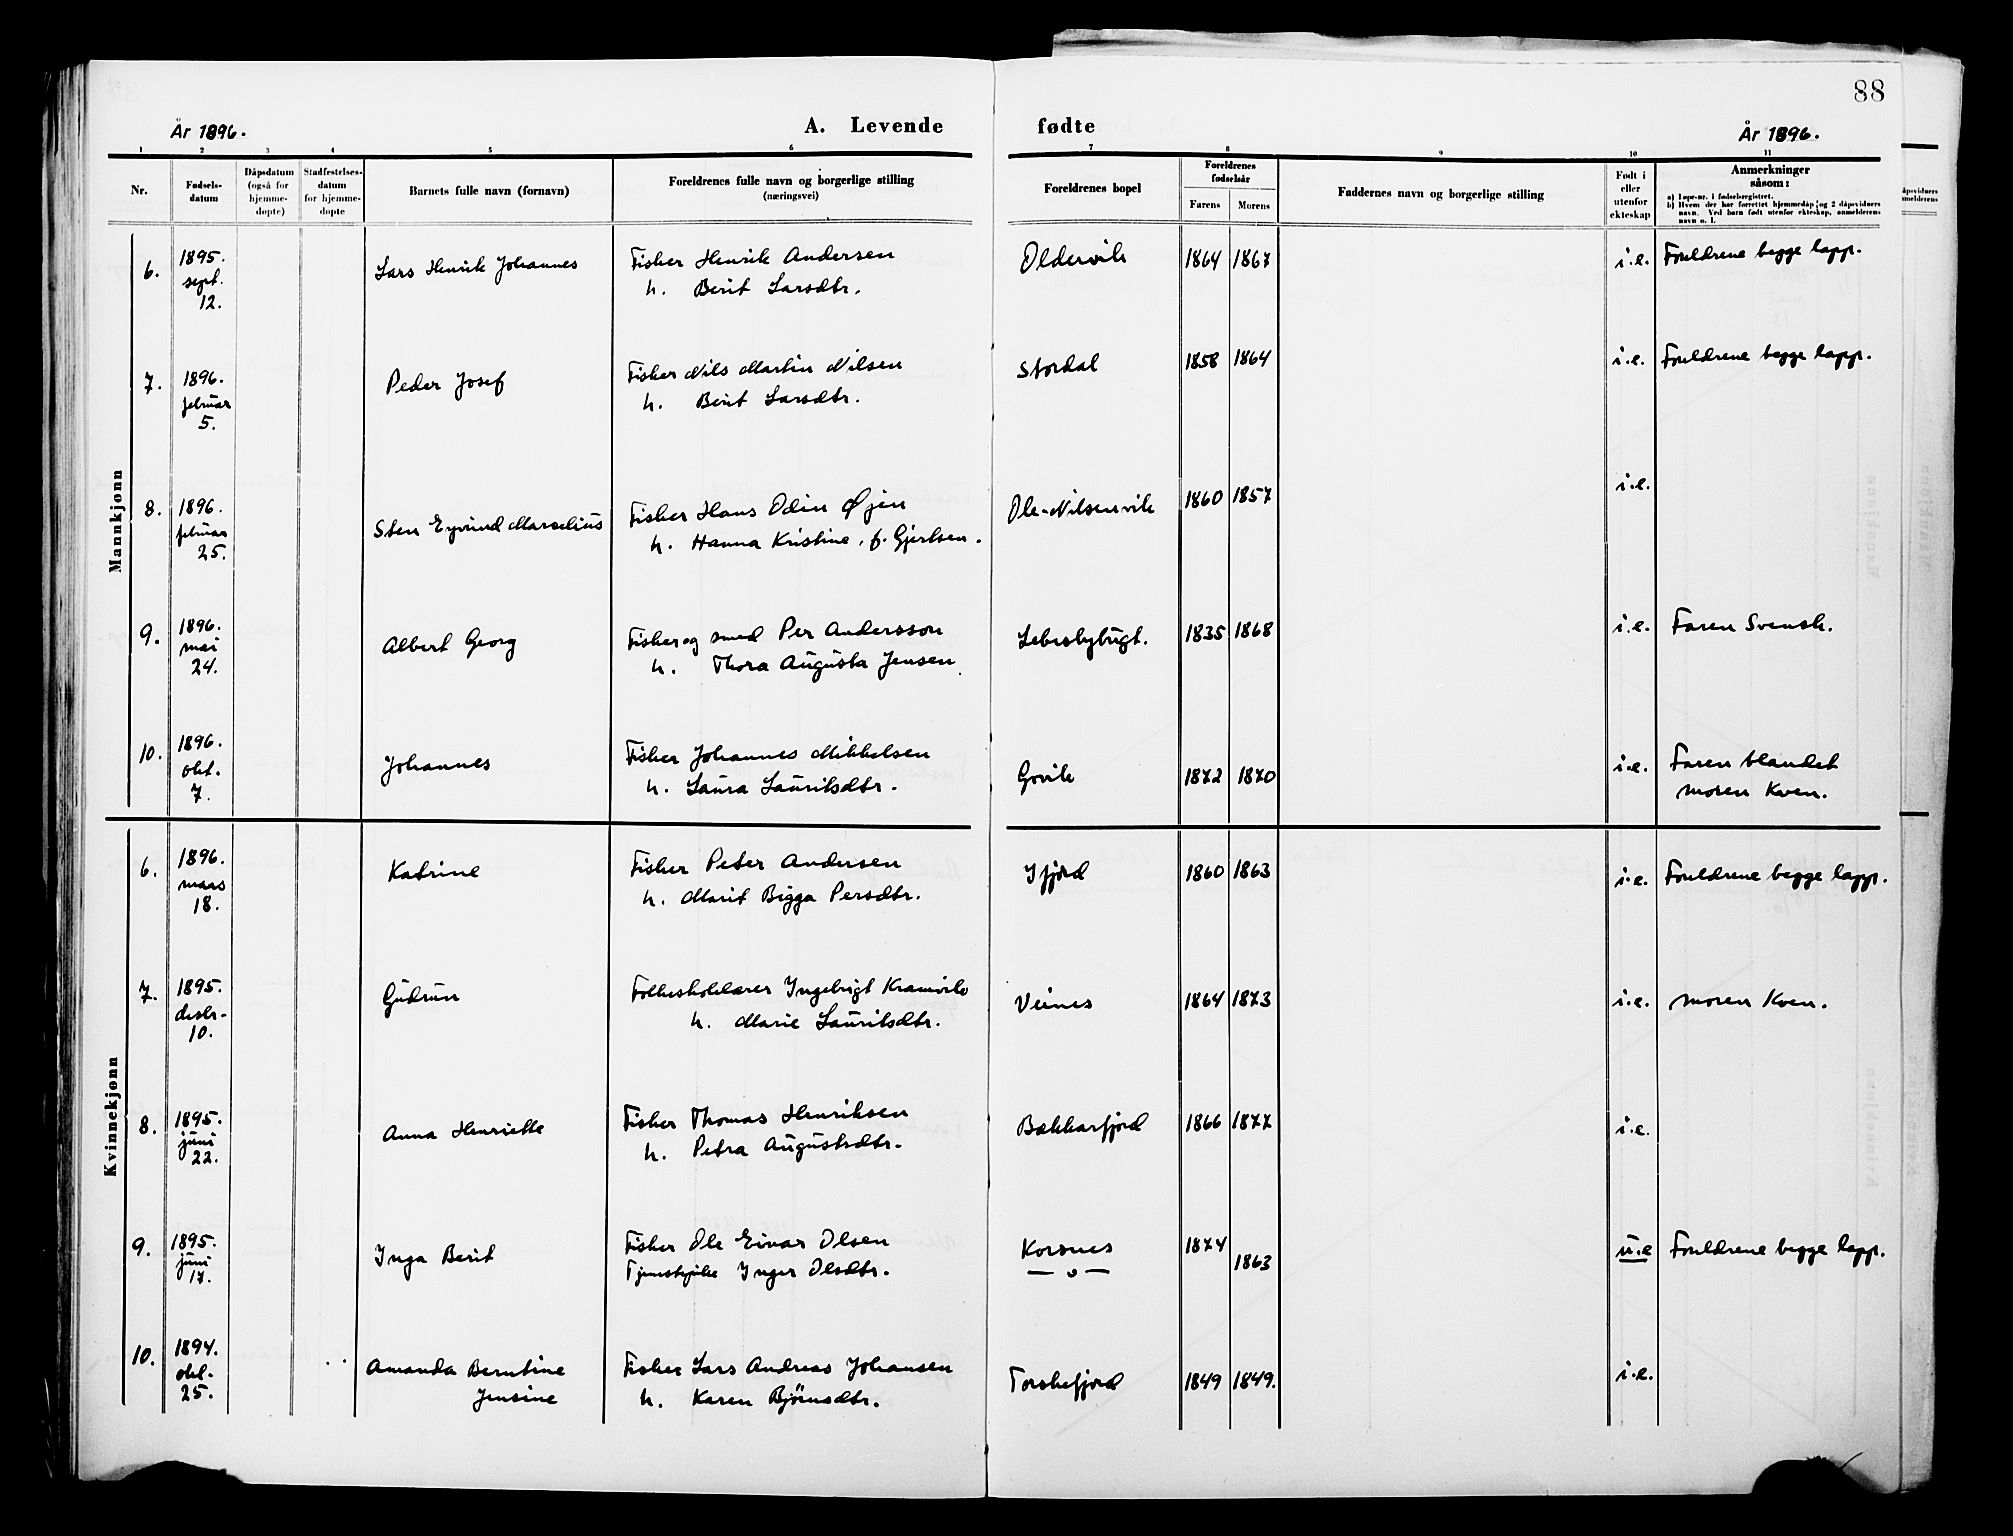 88
År 1896.
A. Levende fødte
År 1896.
1 2 3 4 5 6 7 8 9 10 11
Nr.
Fødsels-
datum
Dåpsdatum
(også for
hjemme-
døpte)
Stadfestelses-
datum
for hjemme-
døpte
Barnets fulle navn (fornavn)
Foreldrenes fulle navn og borgerlige stilling
(næringsvei)
Foreldrenes bopel
Foreldrenes
fødselsår
Farens Morens
Faddernes navn og borgerlige stilling
Født i
eller
utenfor
ekteskap
Anmerkninger
såsom:
a) Løpe-nr. i fødselsregistret.
b) Hvem der har forrettet hjemmedåp og 2 dåpsvidners
navn. Ved barn født utenfor ekteskap, anmelderens
navn o. l.
Mannkjønn
6. 1895. sept. 12. Lars Henrik Johannes Fisker Henrik Andersen
h. Berit Larsdtr. Oldervik 1864 1867 i.e. Foreldrene begge lapp.
7. 1896. februar 5. Peder Josef Fisker Nils Martin Nilsen
h. Berit Larsdtr. Stordal 1858 1864 i.e. Foreldrene begge lapp.
8. 1896. februar 25. Sten Eyvind Marselius Fisker Hans Odin Øjen
h. Hanna Kristine, f. Gjertsen. Ole-Nilsenvik 1860 1857 i.e.
9. 1896. mai 24. Albert Georg Fisker og smed Per Andersson
h. Thora Augusta Jensen. Lebesbybugt. 1835 1868 i.e. Faren Svensk.
10. 1896. okt. 7. Johannes Fisker Johannes Mikkelsen
h. Laura Lauritsdtr. Govik 1872 1870 i.e. Faren blandet
moren Kven.
Kvinnekjønn
6. 1896. mars 18. Katrine Fisker Peter Andersen
h. Marit Bigga Persdtr. Ifjord 1860 1863 i.e. Foreldrene begge lapp.
7. 1895. desbr. 10. Gudrun Folkeskolelærer Ingebrigt Kramvik
h. Marie Lauritsdtr. Veines 1864 1873 i.e. Moren Kven.
8. 1895. juni 22. Anna Henriette Fisker Thomas Henriksen
h. Petra Augustsdtr. Bekkarfjord 1866 1877 i.e.
9. 1895. juni 17. Inga Berit Fisker Ole Eivar Olsen
Tjenestepike Inger Olsdtr. Korsnes
— o — 1874 1863 u.e Foreldrene begge lapp.
10. 1894. okt. 25. Amanda Berntine
Jensine Fisker Lars Andreas Johansen
h. Karen Bjørnsdtr. Torskefjord 1849 1849. i.e.